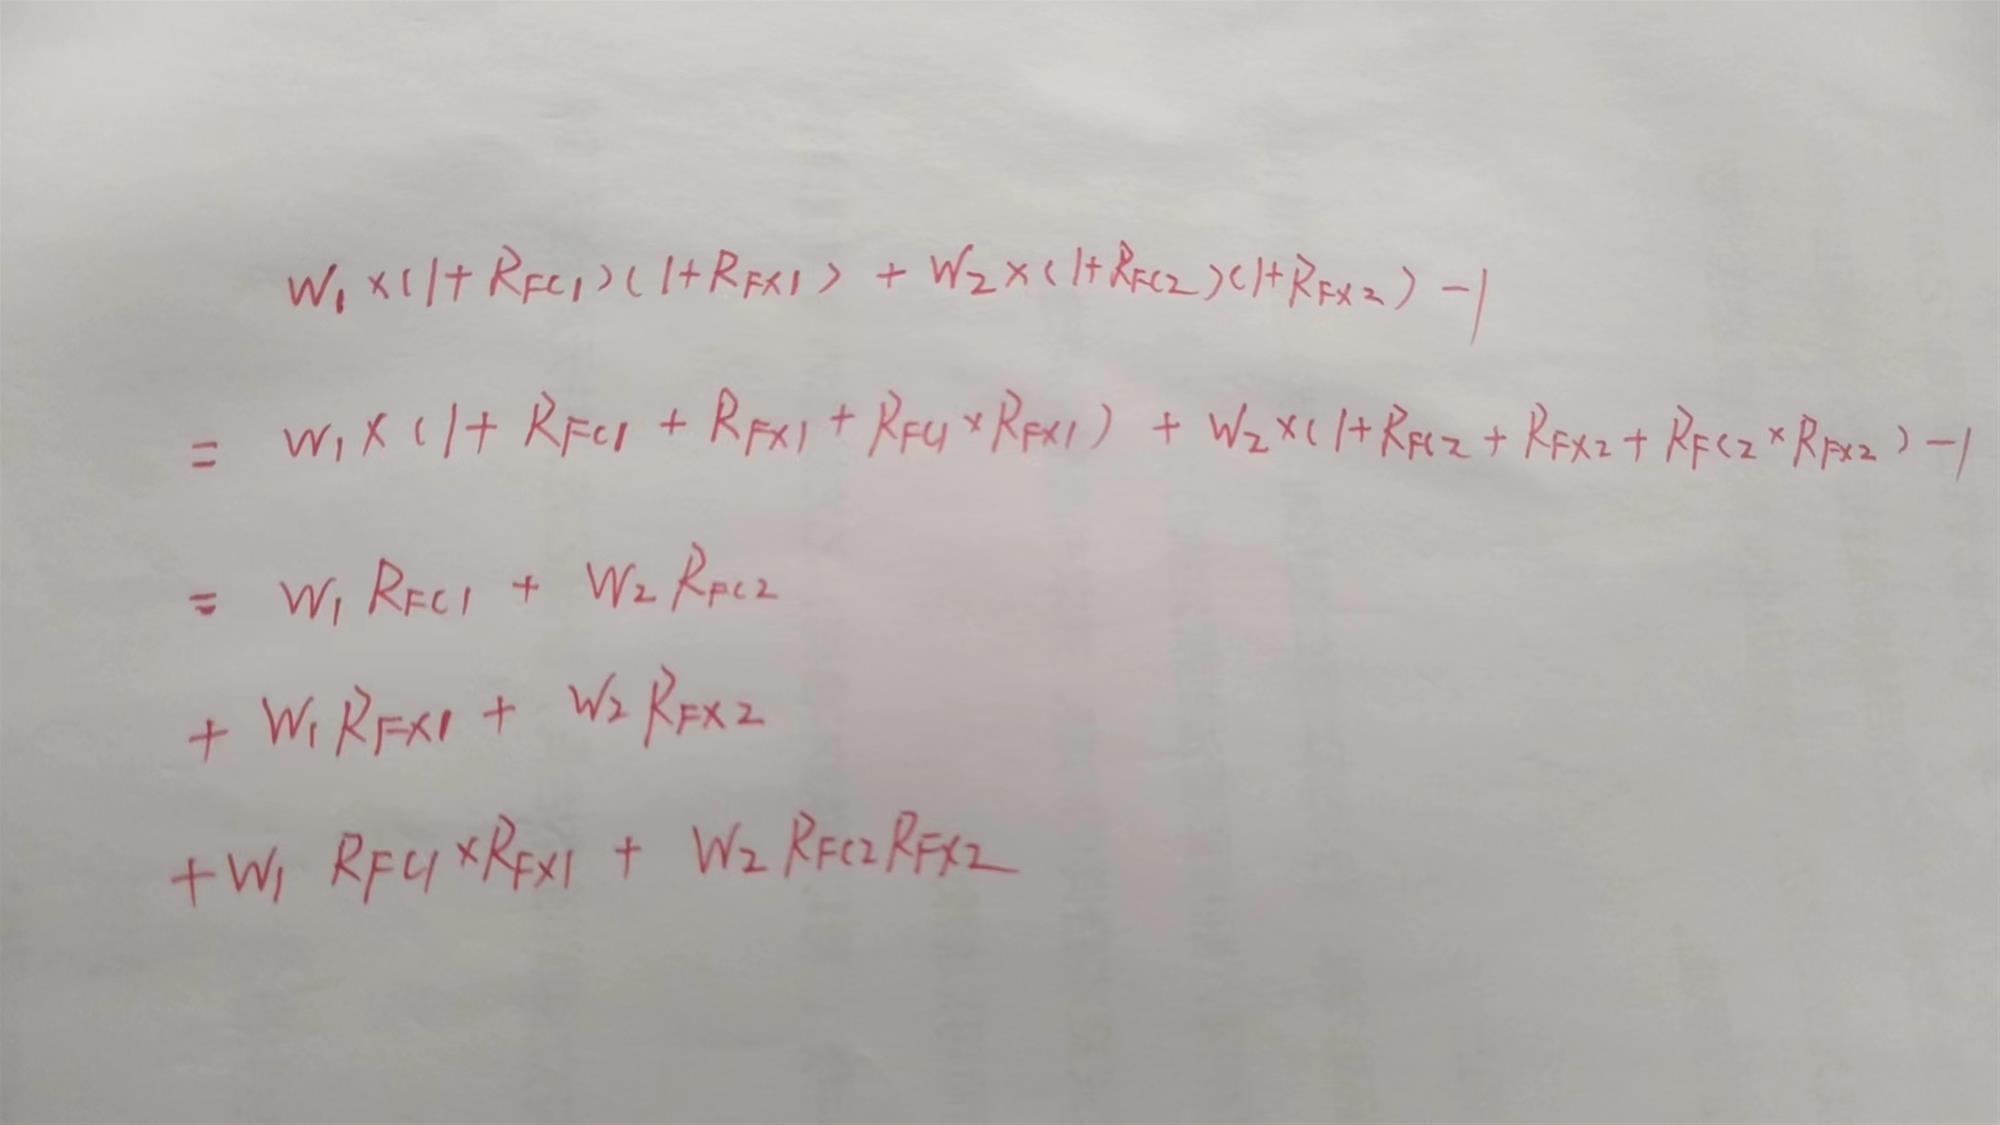 W₁ × (1 + R_FC1)(1 + R_FX1) + W₂ × (1 + R_FC2)(1 + R_FX2) - 1
= W₁ × (1 + R_FC1 + R_FX1 + R_FC1 × R_FX1) + W₂ × (1 + R_FC2 + R_FX2 + R_FC2 × R_FX2) - 1
= W₁ R_FC1 + W₂ R_FC2
+ W₁ R_FX1 + W₂ R_FX2
+ W₁ R_FC1 × R_FX1 + W₂ R_FC2 R_FX2